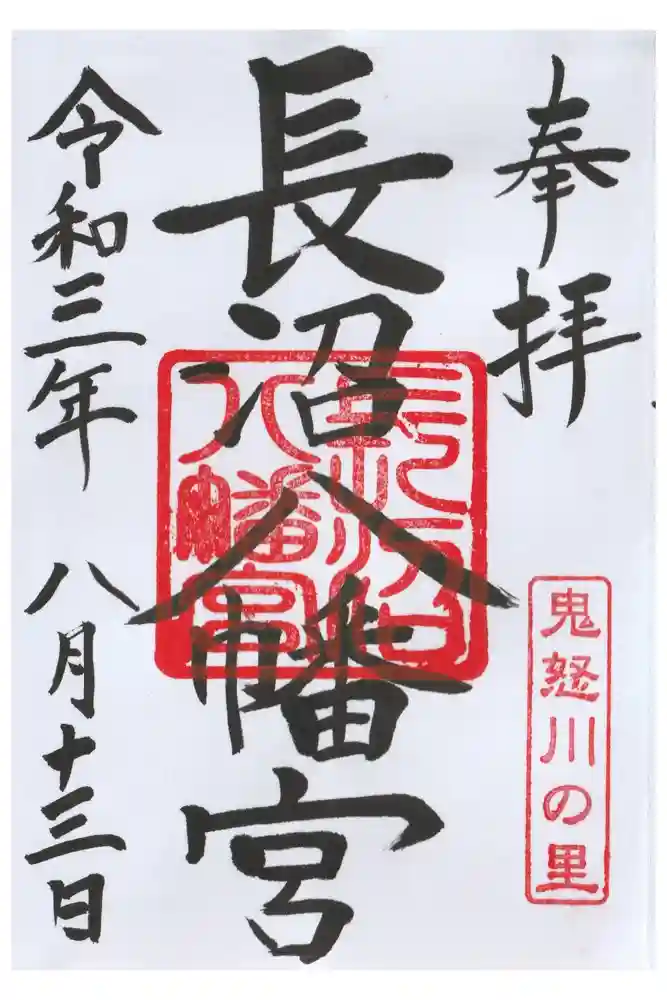 奉拝
鬼怒川の里
長沼八幡宮
八幡宮
令和三年 八月十三日